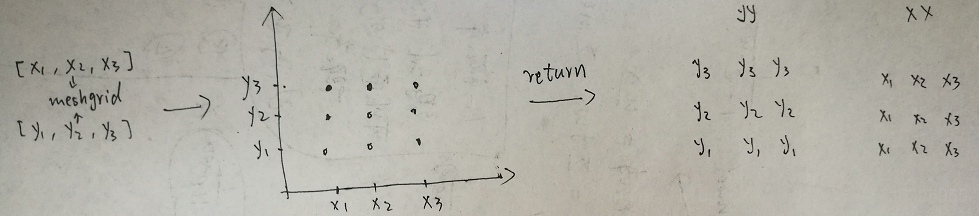 [x₁, x₂, x₃]
meshgrid
[y₁, y₂, y₃]
y₃
y₂
y₁
x₁ x₂ x₃
return
yy
y₃ y₃ y₃
y₂ y₂ y₂
y₁ y₁ y₁
xx
x₁ x₂ x₃
x₁ x₂ x₃
x₁ x₂ x₃